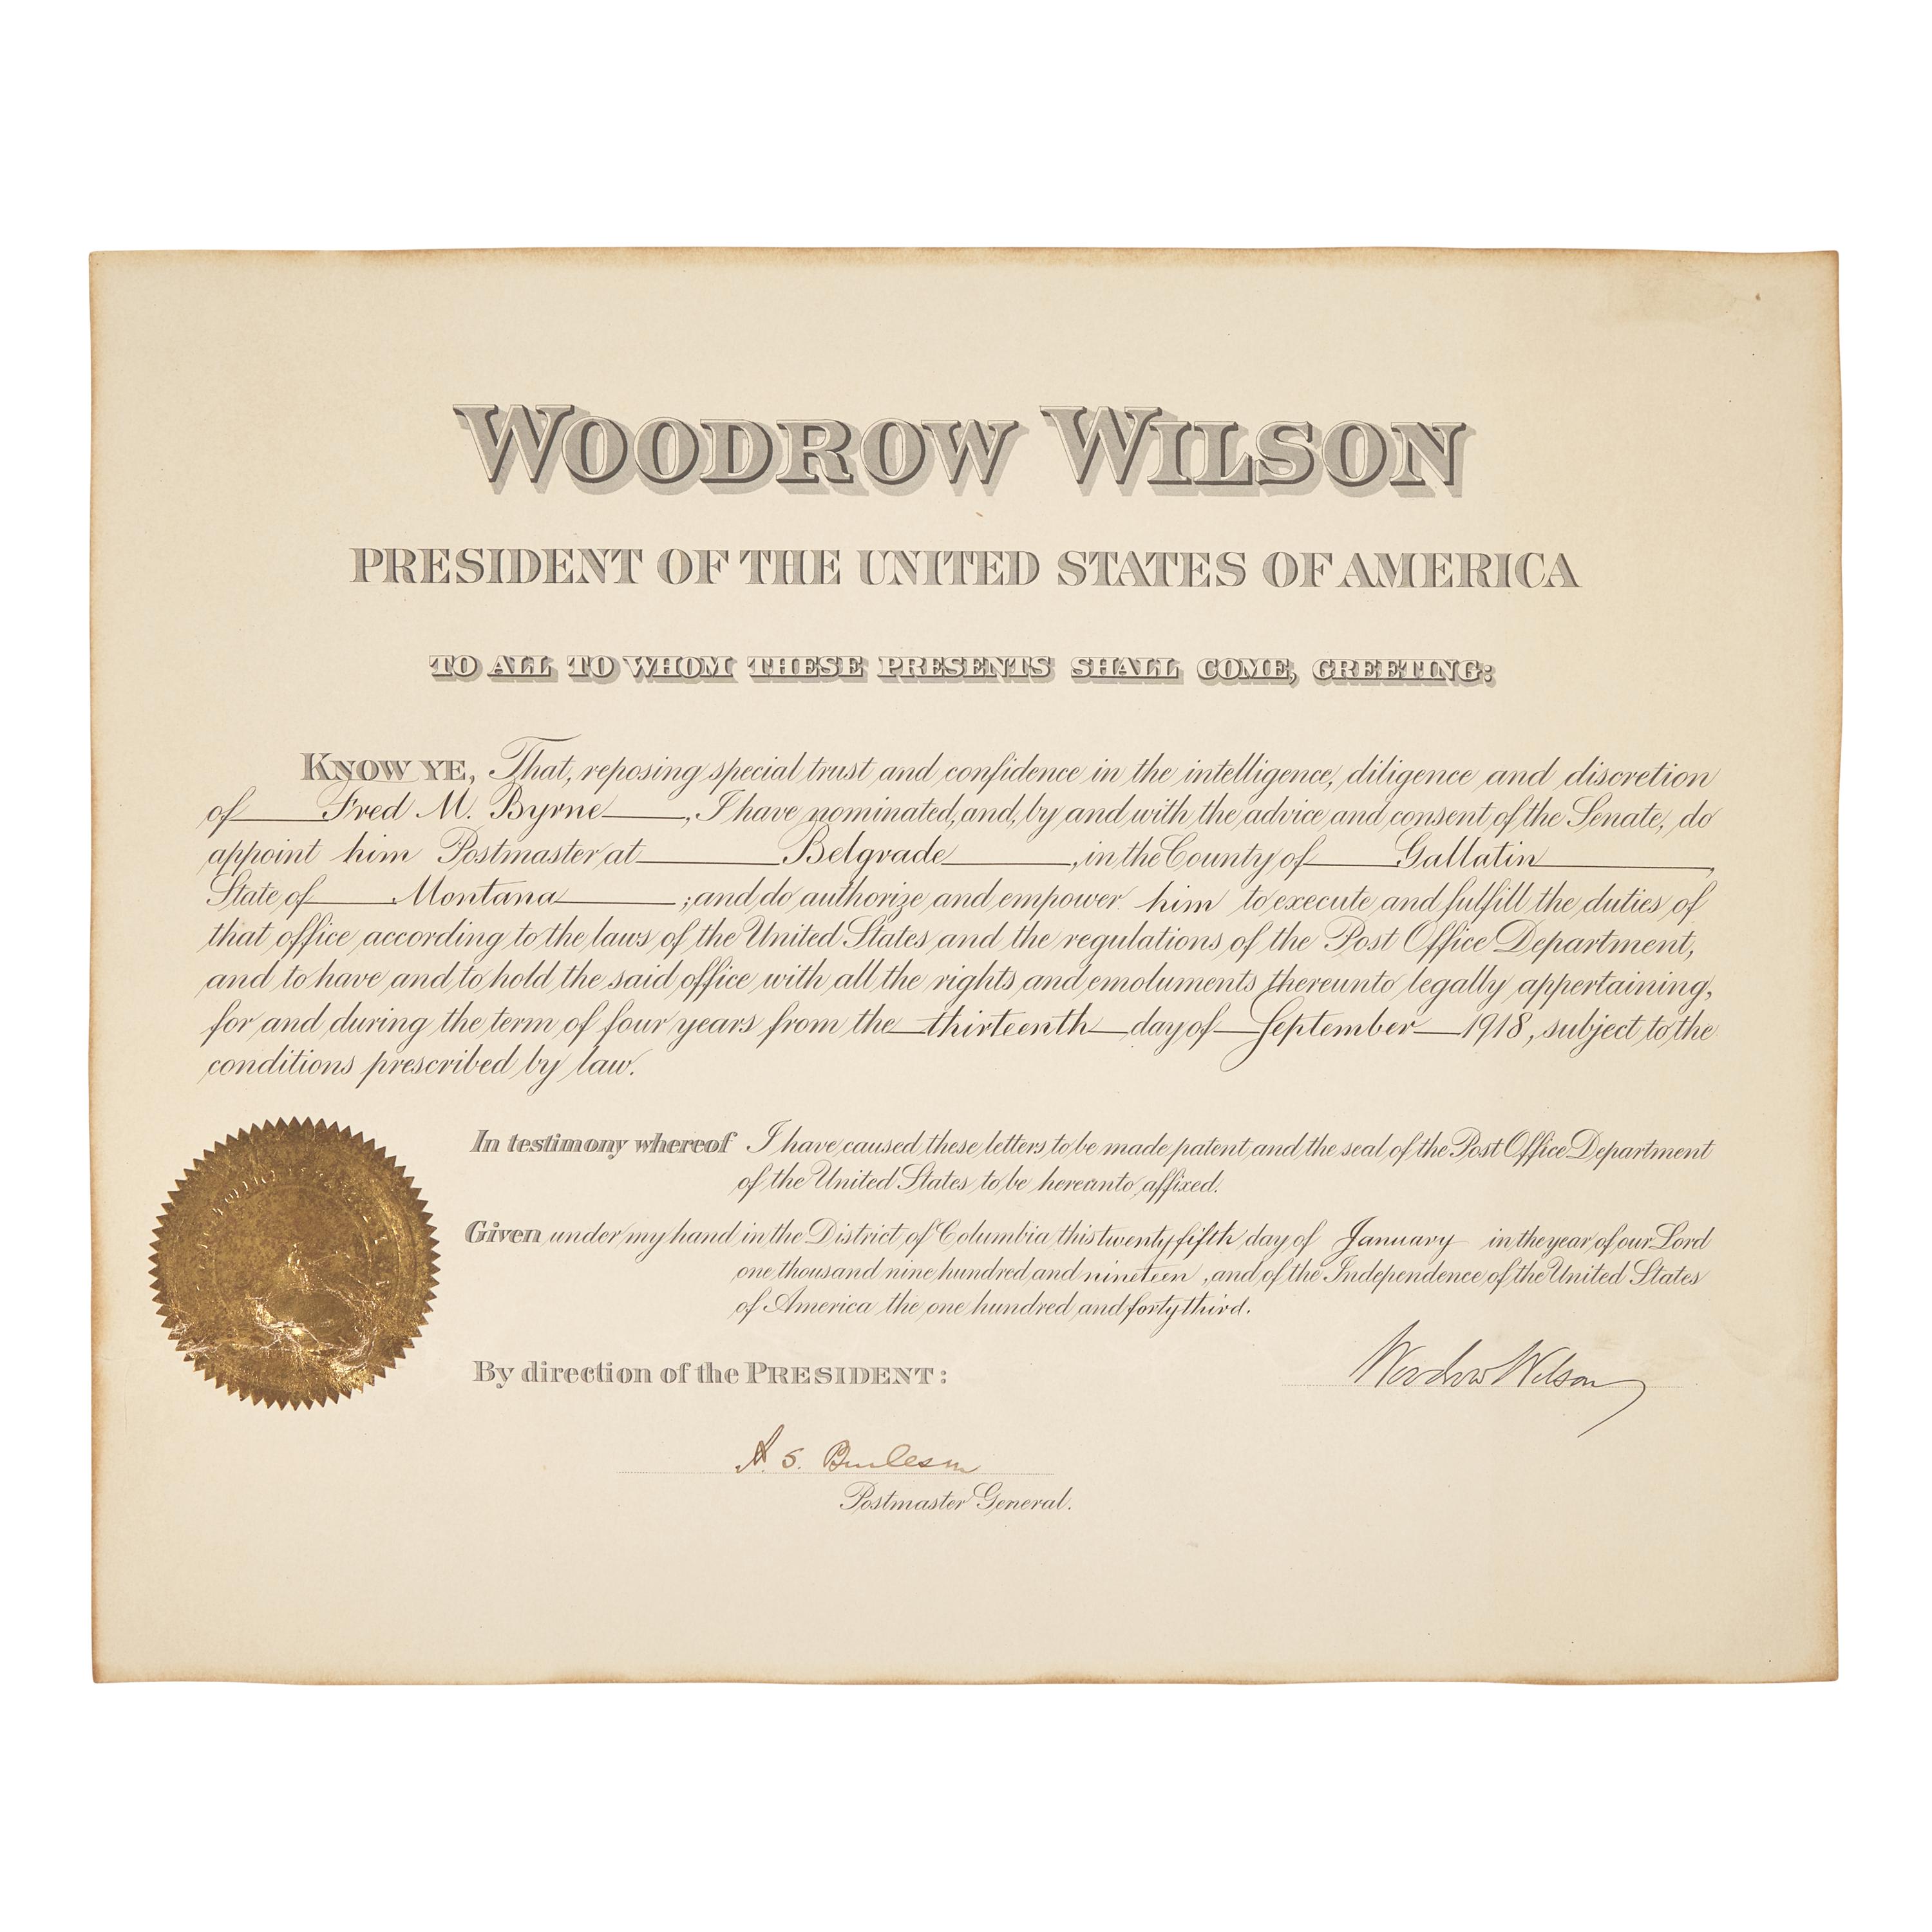 WOODROW WILSON
PRESIDENT OF THE UNITED STATES OF AMERICA
TO ALL TO WHOM THESE PRESENTS SHALL COME, GREETING:
KNOW YE, That, reposing special trust and confidence in the intelligence, diligence and discretion
of Fred M. Byrne, I have nominated, and, by and with the advice and consent of the Senate, do
appoint him Postmaster at Belgrade, in the County of Gallatin,
State of Montana; and do authorize and empower him to execute and fulfill the duties of
that office according to the laws of the United States and the regulations of the Post Office Department,
and to have and to hold the said office with all the rights and emoluments thereunto legally appertaining,
for and during the term of four years from the thirteenth day of September 1918, subject to the
conditions prescribed by law.
In testimony whereof I have caused these letters to be made patent and the seal of the Post Office Department
of the United States to be hereunto affixed.
Given under my hand in the District of Columbia this twenty fifth day of January in the year of our Lord
one thousand nine hundred and nineteen, and of the Independence of the United States
of America the one hundred and forty third.
By direction of the PRESIDENT:
Woodrow Wilson
A. S. Burleson
Postmaster General.